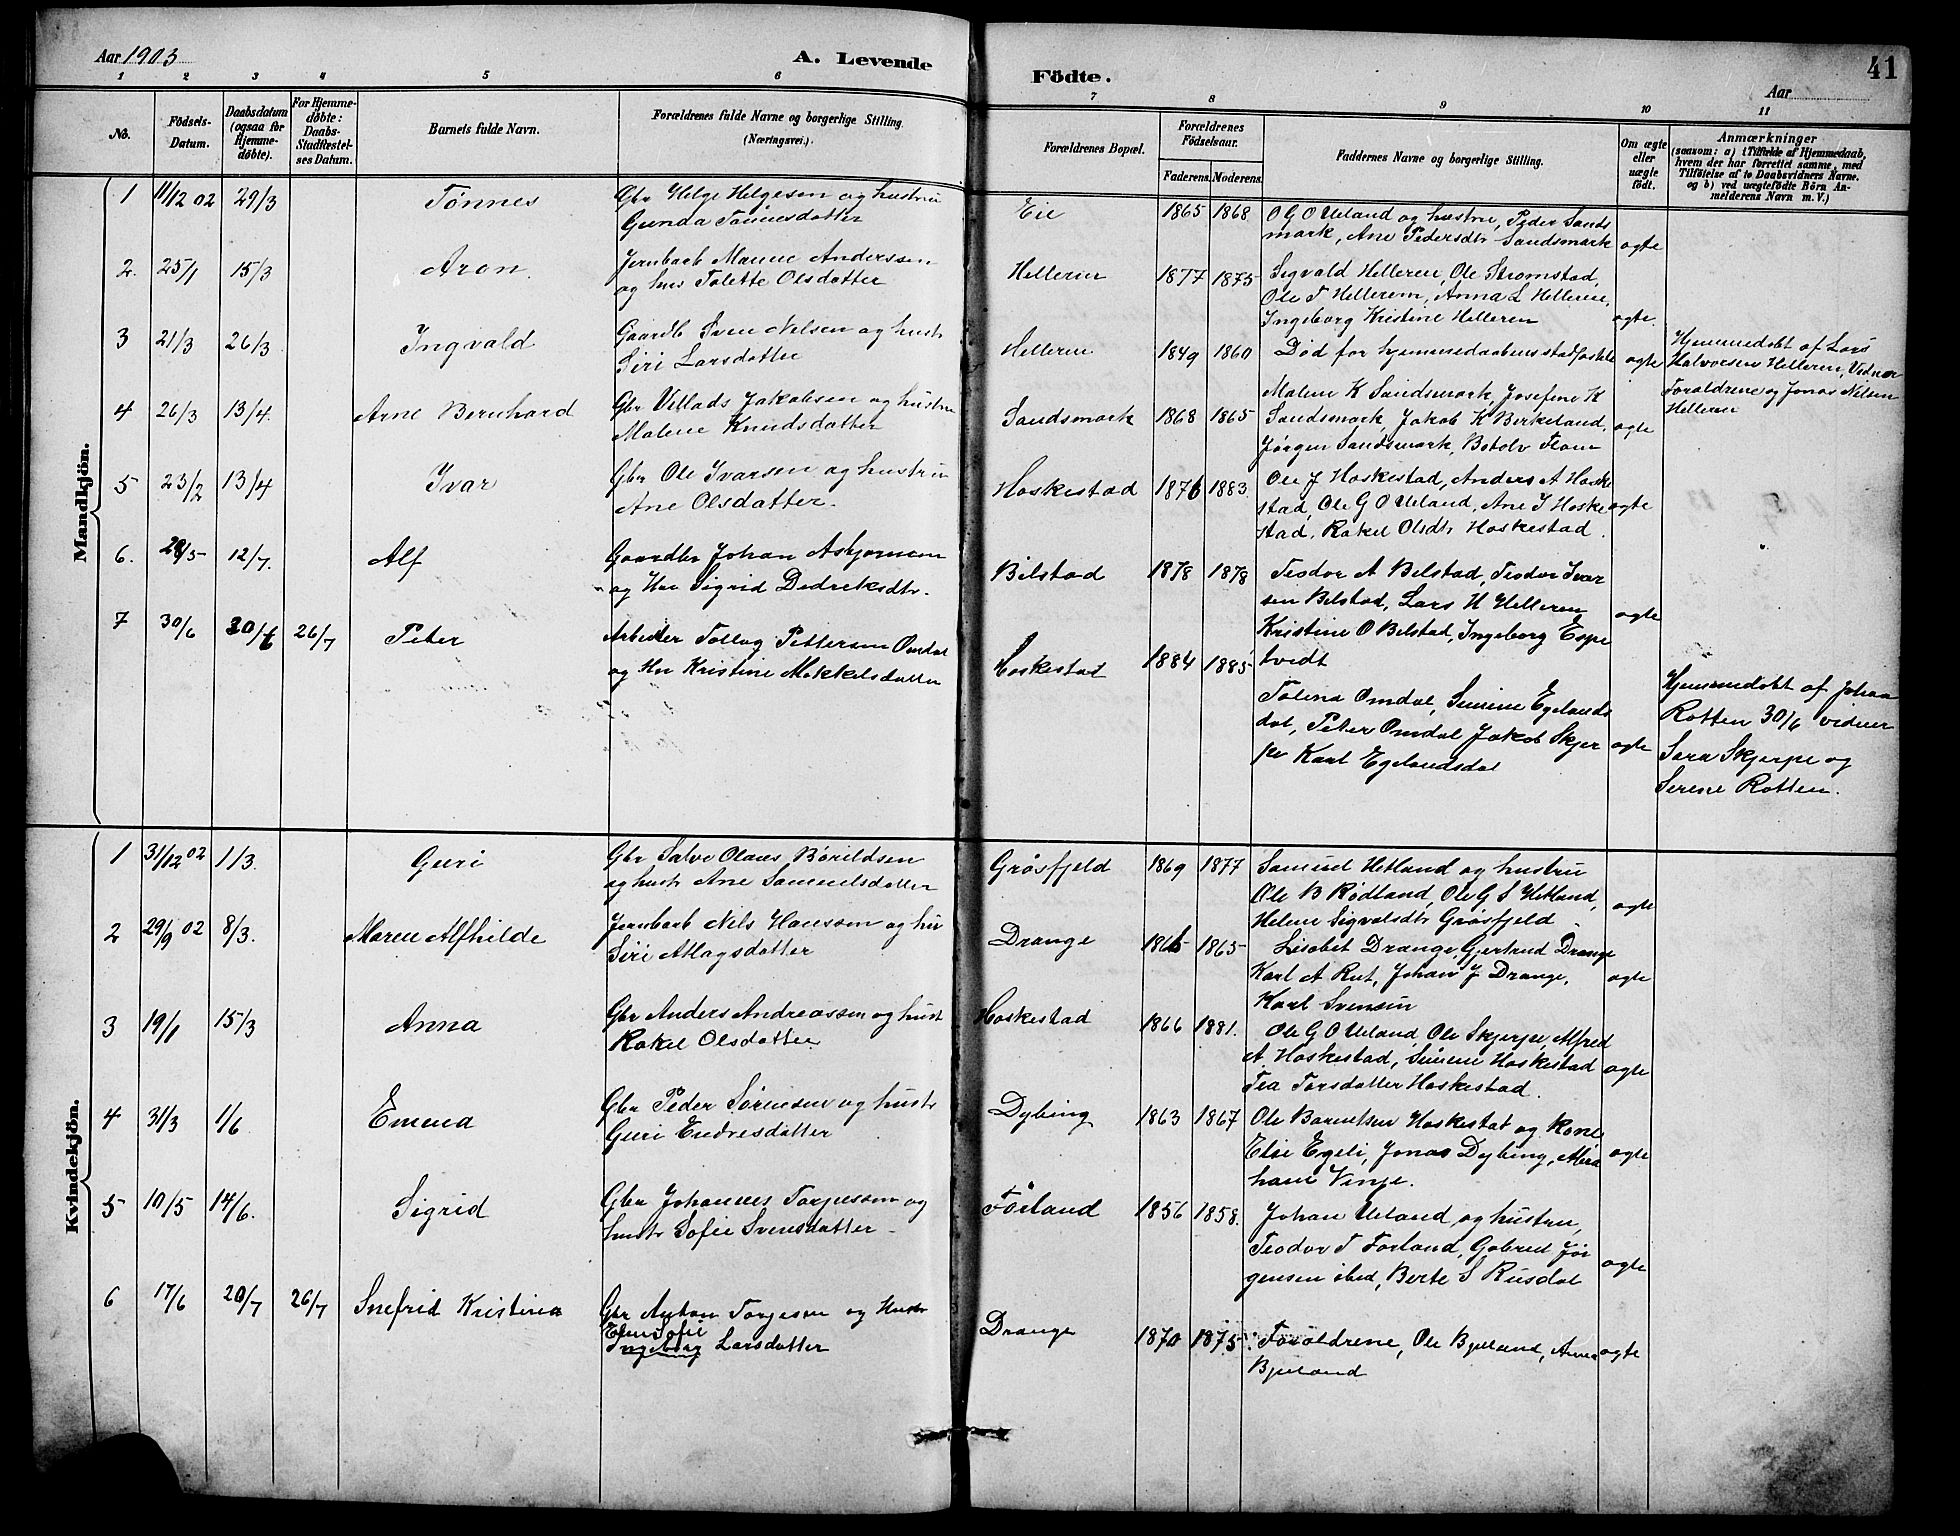 Aar 1903
A. Levende
Födte.
Aar
41
1 2 3 4 5 6 7 8 9 10 11
No.
Födsels-Datum.
Daabsdatum (ogsaa for Hjemme-döbte).
For Hjemme-döbte: Daabs-Stadfæstel-ses Datum.
Barnets fulde Navn.
Forældrenes fulde Navne og borgerlige Stilling. (Næringsvei.)
Forældrenes Bopæl.
Forældrenes Födselsaar.
Faderens. Moderens.
Faddernes Navne og borgerlige Stilling.
Om ægte eller uægte födt.
Anmærkninger (saasom: a) i Tilfælde af Hjemmedaab, hvem der har forrettet samme, med Tilföielse af to Daabsvidners Navne. og b) ved uægtefödte Börn Anmelderens Navn m. V.)
Mandkjön.
1 11/12 02 29/3 Tønnes
Gbr Helge Helgesen og hustru
Gunda Tønnesdatter
Eie 1865 1868
O G O Ueland og hustru, Peder Sands
mark, Ane Pedersdtr Sandsmark
ægte
2. 25/1 15/3 Aron.
Jernbarb Manne Anderssen
og hus Tolette Olsdatter
Helleren 1877 1875
Sigvald Helleren, Ole Strømstad,
Ole T Helleren, Anna L Helleren,
Ingeborg Kristine Helleren
ægte.
3 21/3 26/3 Ingvald
Gaardb Sven Nilsen og hustr
Siri Larsdatter
Helleren 1849 1860
Død før hjemmedaabens stadfæstelse
ægte
Hjemmedøbt af Lars
Halvorsen Helleren, Vidner
Forældrene og Jonas Nilsen
Helleren
4 26/3 13/4. Arne Bernhard
Gbr Villads Jakobsen og hustru
Malene Knudsdatter
Sandsmark 1868 1865
Malene K Sandsmark, Josefine K
Sandsmark, Jakob K Birkeland,
Jørgen Sandsmark, Botolv Flom
ægte
5 23/2 13/4 Ivar
Gbr Ole Ivarsen og hustru
Ane Olsdatter.
Hoskestad 1876 1883.
Ole J Hoskestad, Anders A Hoske
stad, Ole G O Ueland, Ane I Hoske
stad, Rakel Olsdtr Hoskestad.
ægte
6. 28/5 12/7. Alf
Gaardbr Johan Asbjørnsen
og Hu Sigrid Didreksdtr.
Bilstad 1878 1878
Teodor A Bilstad, Teodor Ivar
sen Bilstad, Lars H Helleren
Kristine O Bilstad, Ingeborg Espe
tvedt
ægte
7 30/6 30/6 26/7 Peter
Arbeider Tollag Pettersen Omdal
og Hu Kristine Mikkelsdatter
Hoskestad 1884 1885
Tolena Omdal, Simine Egelands
dal, Peter Omdal Jakob Skjer
pe Karl Egelandsdal
ægte
Hjemmedøbt af Johan
Rotten 30/6 vidner
Sara Skjerpe og
Serene Rotten.
Kvindekjön.
1 31/12 02 1/3. Guri
Gbr Salve Olaus Børildsen
og hustr Ane Samuelsdatter
Grøsfjeld 1869 1877
Samuel Hetland og hustru
Ole B Rødland, Ole G S Hetland,
Helene Sigvalsdtr Grøsfjeld
ægte
2 29/9 02 8/3. Maren Alfhilde
Jernbarb Nils Hanssen og hu
Siri Atlagsdatter
Drange 1865
Lisabet Drange, Gjertrud Drange
Karl A Rut, Johan J Drange,
Karl Svensen
ægte
3 19/1 15/3 Anna
Gbr Anders Andreassen og hust
Rakel Olsdatter
Hoskestad 1866 1881.
Ole G O Ueland, Ole Skjerpe, Alfred
A Hoskestad, Simine Hoskestad
Tea Torsdatter Hoskestad.
ægte
4 31/3 1/6 Emma
Gbr Peder Sørensen og hustr
Guri Endresdatter
Dybing 1863 1867
Ole Barentsen Hoskestad og Kone
Elsi Egeli, Jonas Dybing, Abra
ham Vinje.
ægte
5 10/5 14/6. Sigrid
Gbr Johannes Torjussen og
hustr Sofie Svensdatter
Førland 1856 1858.
Johan Ueland og hustru,
Teodor T Førland, Gabriel Jør
gensen ibid, Berte S Rusdal
ægte
6 17/6 20/7 26/7 Snefrid Kristine
Gbr Anton Torjesen og Hustr
Elen Sofie
Ingeborg Larsdatter
Drange 1870 1875
Forældrene, Ole Bjelland, Anna
Bjelland
ægte